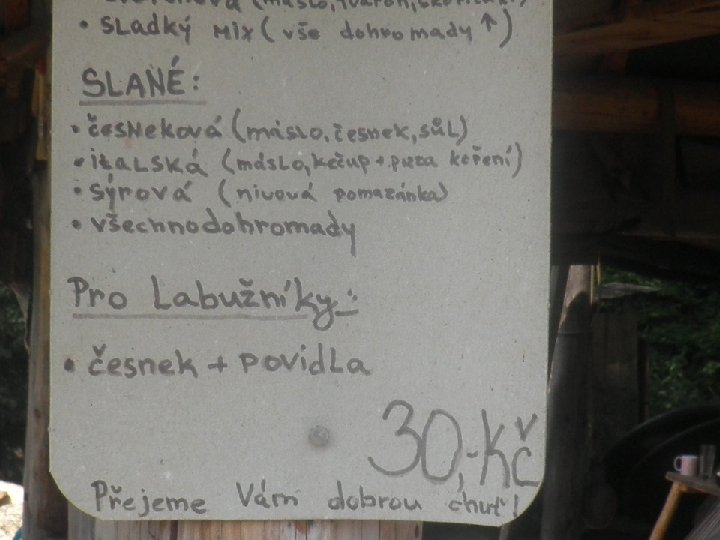 (máslo, tvaroh, skořice)
• SLADKÝ MIX (vše dohromady ↑)
SLANÉ:
• česNeková (máslo, česnek, sůl)
• italSká (máslo, kečup + pizza koření)
• Sýrová (nivová pomazánka)
• všechnodohromady
Pro Labužníky:
• česnek + povidla
30,-Kč
Přejeme Vám dobrou chuť!